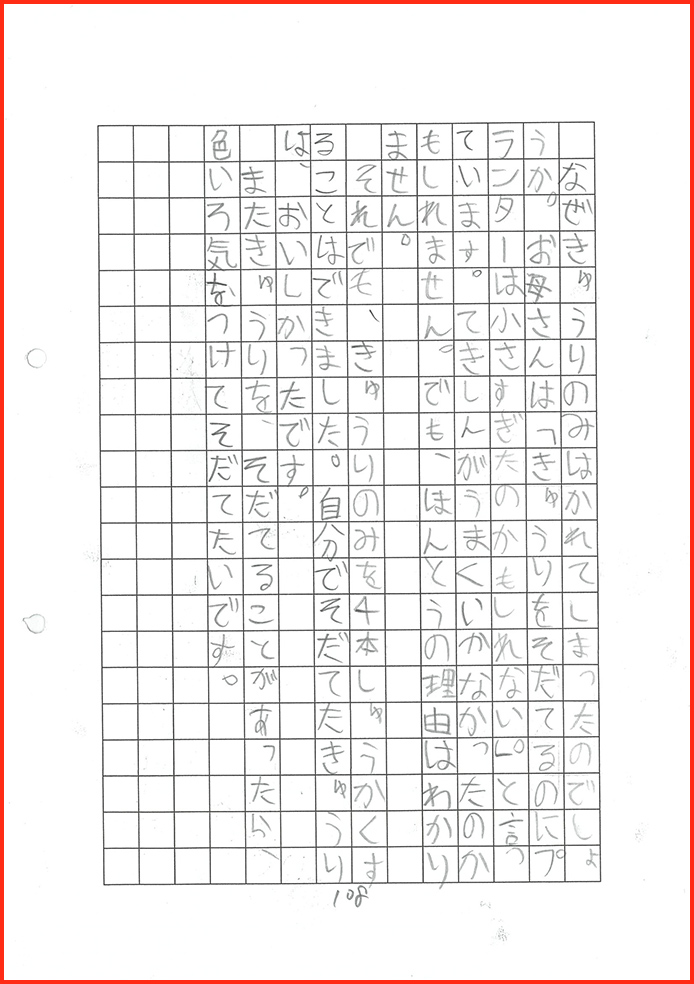 なぜきゅうりのみはかれてしまったのでしょ
うか。お母さんは「きゅうりをそだてるのにプ
ランターは小さすぎたのかもしれない」。と言っ
ています。てきしんがうまくいかなかったのか
もしれません。でも、はんとうの理由はわかり
ません。
それでも、きゅうりのみを4本しゅうかくす
ることはできました。自分でそだてたきゅうり
は、おいしかったです。
またきゅうりを、そだてることがあったら、
色いろ気をつけてそだてたいです。
108